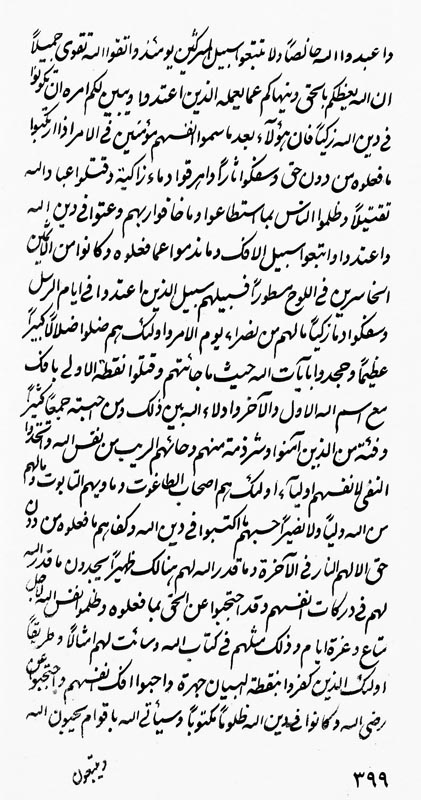 واعبدوا الله خالصاً ولا تتبعوا سبيل المشركين يومئذ واتقوا الله تقوى جميلاً
ان الله يعظكم بالحق وينهاكم عما يعمله الذين اعتدوا ويبين لكم امره ان تكونوا
في دين الله زكياً فان هؤلآء بعد ما سموا انفسهم مؤمنين في الامر اذا ارتكبوا
ما فعلوه من دون حق وسفكوا ثاراً واهرقوا دماء زاكية وقتلوا عباد الله
تقتيلاً وظلموا الناس بما استطاعوا وما خافوا ربهم وعتوا في دين الله
واعتدوا واتبعوا سبيل الافك وما ندموا عما فعلوه وكانوا من
الخاسرين في اللوح مسطوراً فسبيلهم سبيل الذين اعتدوا في ايام الرسل
وسفكوا دماً زكياً ما لهم من نصراء يوم الامر اولئك هم ضلوا ضلالاً كبيراً
عظيماً وجحدوا بايات الله حيث ما جائتهم وقتلوا نقطة الاولى بافك
مع اسم الله الاول والآخر وادلاء الله بين ذلك ومن حسبته جمعاً كثيراً
وفئة من الذين آمنوا وشرذمة منهم وحائهم الريب من نفس الله واتخذوا
النفى لانفسهم اوليآء اولئك هم اصحاب الطاغوت وماويهم التابوت وما لهم
من الله ولياً ولا نصيراً حسبهم ما اكتبوا في دين الله وكفاهم ما فعلوه من دون
حق الا لهم النار في الآخرة وما قدر الله لهم هنالك ظهيراً يجدون ما قدر الله
لهم في دركات انفسهم وقد احتجبوا عن الحق بما فعلوه وظلموا نفس الله لاجل
متاع وعزة ايام وذلك مثلهم في كتاب الله وسائت لهم امثالاً وطريقاً
اولئك الذين كفروا بنقطة البيان جهرة واحبوا افك انفسهم واحتجبوا عن
رضى الله وكانوا في دين الله ظلوماً مكتوباً وسيأتي الله باقوام يحبون الله
ويتبعون
٣٩٩